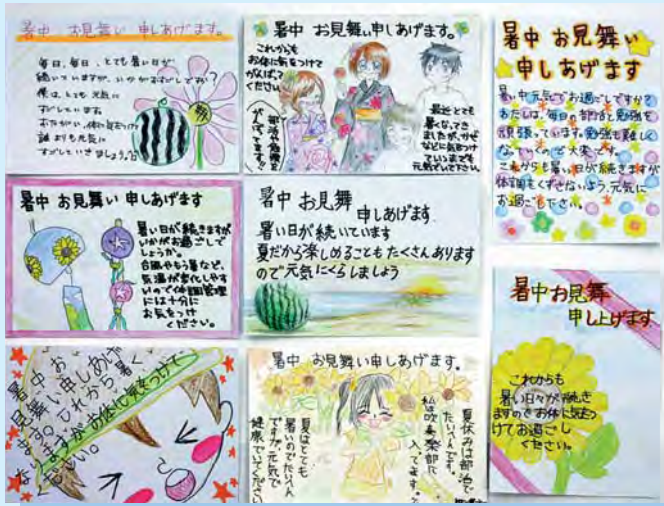 暑中 お見舞い 申しあげます。
毎日、毎日、とても暑い日が
続いていますが、いかがおすごしですか?
僕は、とても元気に
すごしています。
おたがい、体に気をつけて
誰よりも元気に
すごしていきましょう。
暑中 お見舞い申しあげます。
これからも
お体に気をつけて
がんばって
ください。
部活や勉強を
がんばってます!!
最近とても
暑くなってき
ましたが、かぜ
などに気をつけ
ていつまでも
元気でいて下さい。
暑中 お見舞い
申しあげます
暑い中元気でお過ごしですか?
わたしは、毎日の部活と勉強を
頑張っています。勉強も難しく
なっていくので大変です。
これからも暑い日が続きますが
体調をくずさないよう、元気に
お過ごし下さい。
暑中 お見舞い 申しあげます
暑い日が続きますが
いかがお過ごしで
しょうか。
台風やもう暑など、
気温が変化しやす
いので体調管理
には十分に
お気をつけ
ください。
暑中 お見舞
申しあげます
暑い日が続いています
夏だから楽しめることもたくさんあります
ので元気にくらしましょう
暑中お見舞
申し上げます
これからも
暑い日々が続き
ますのでお体に気をつ
けてお過ごし
ください。
暑中お
見舞い申しあげ
ます。これから暑く
なりますがお体に気をつけて
ください。
暑中 お見舞い申しあげます。
夏休みは部活で
たいへんです。
私は吹奏楽部に
入ってます。
夏はとても
暑いのでたいへん
ですが元気で
健康でいてください